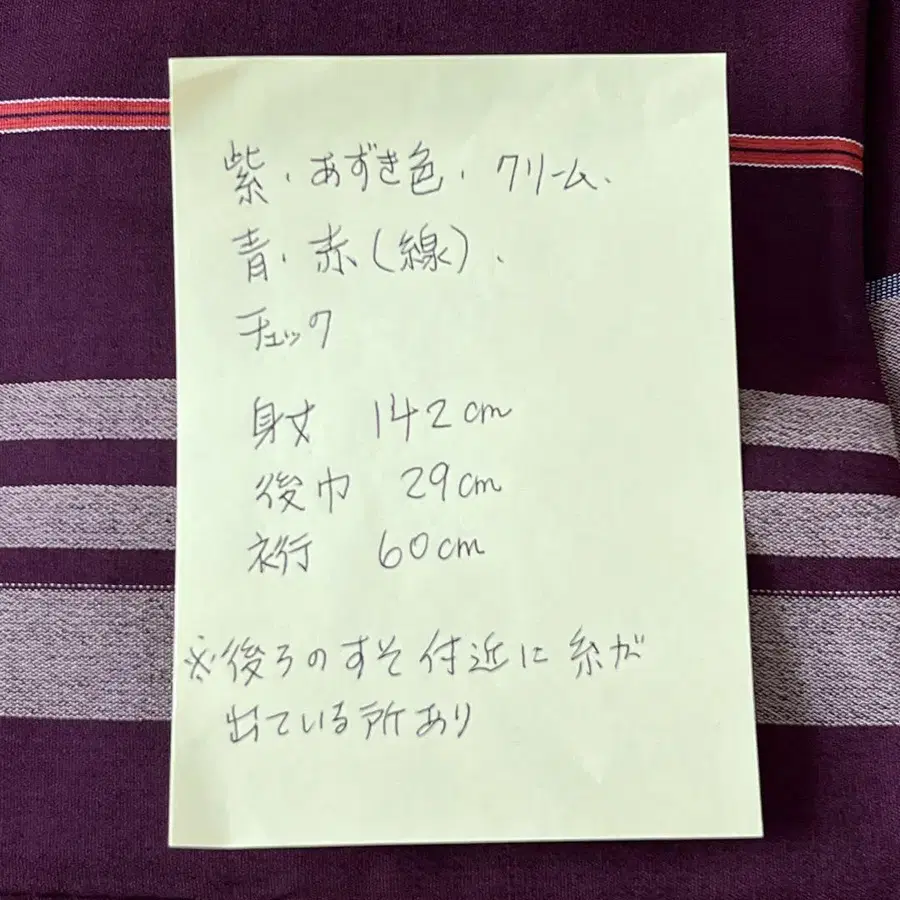 紫・あずき色・クリーム、
青・赤(線)、
チェック
身丈 142cm
後巾 29cm
裄 60cm
※後ろのすそ付近に糸が
出ている所あり